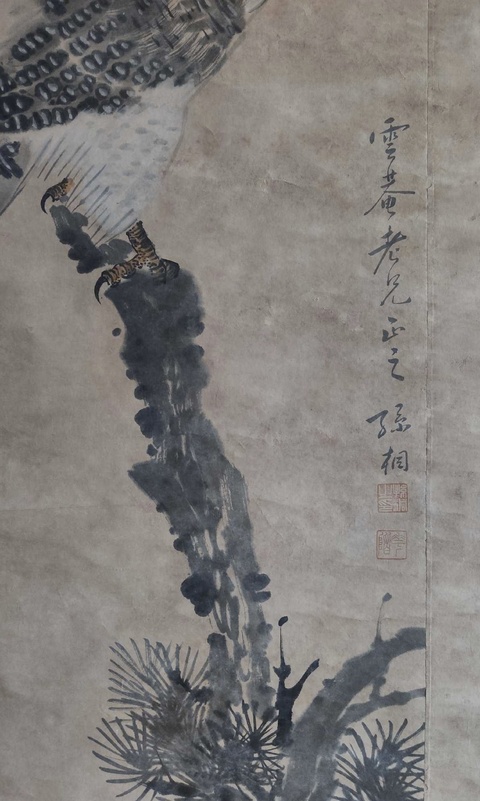 雲菴老兄正之 孫桐